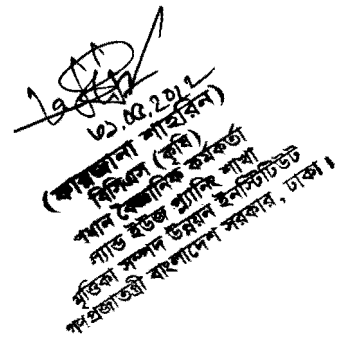 ৩১.০৫.২০১২
(ফারজানা শাহরিন)
বিসিএস (কৃষি)
প্রধান বৈজ্ঞানিক কর্মকর্তা
ল্যান্ড ইউজ প্ল্যানিং শাখা
মৃত্তিকা সম্পদ উন্নয়ন ইনস্টিটিউট
গণপ্রজাতন্ত্রী বাংলাদেশ সরকার, ঢাকা।